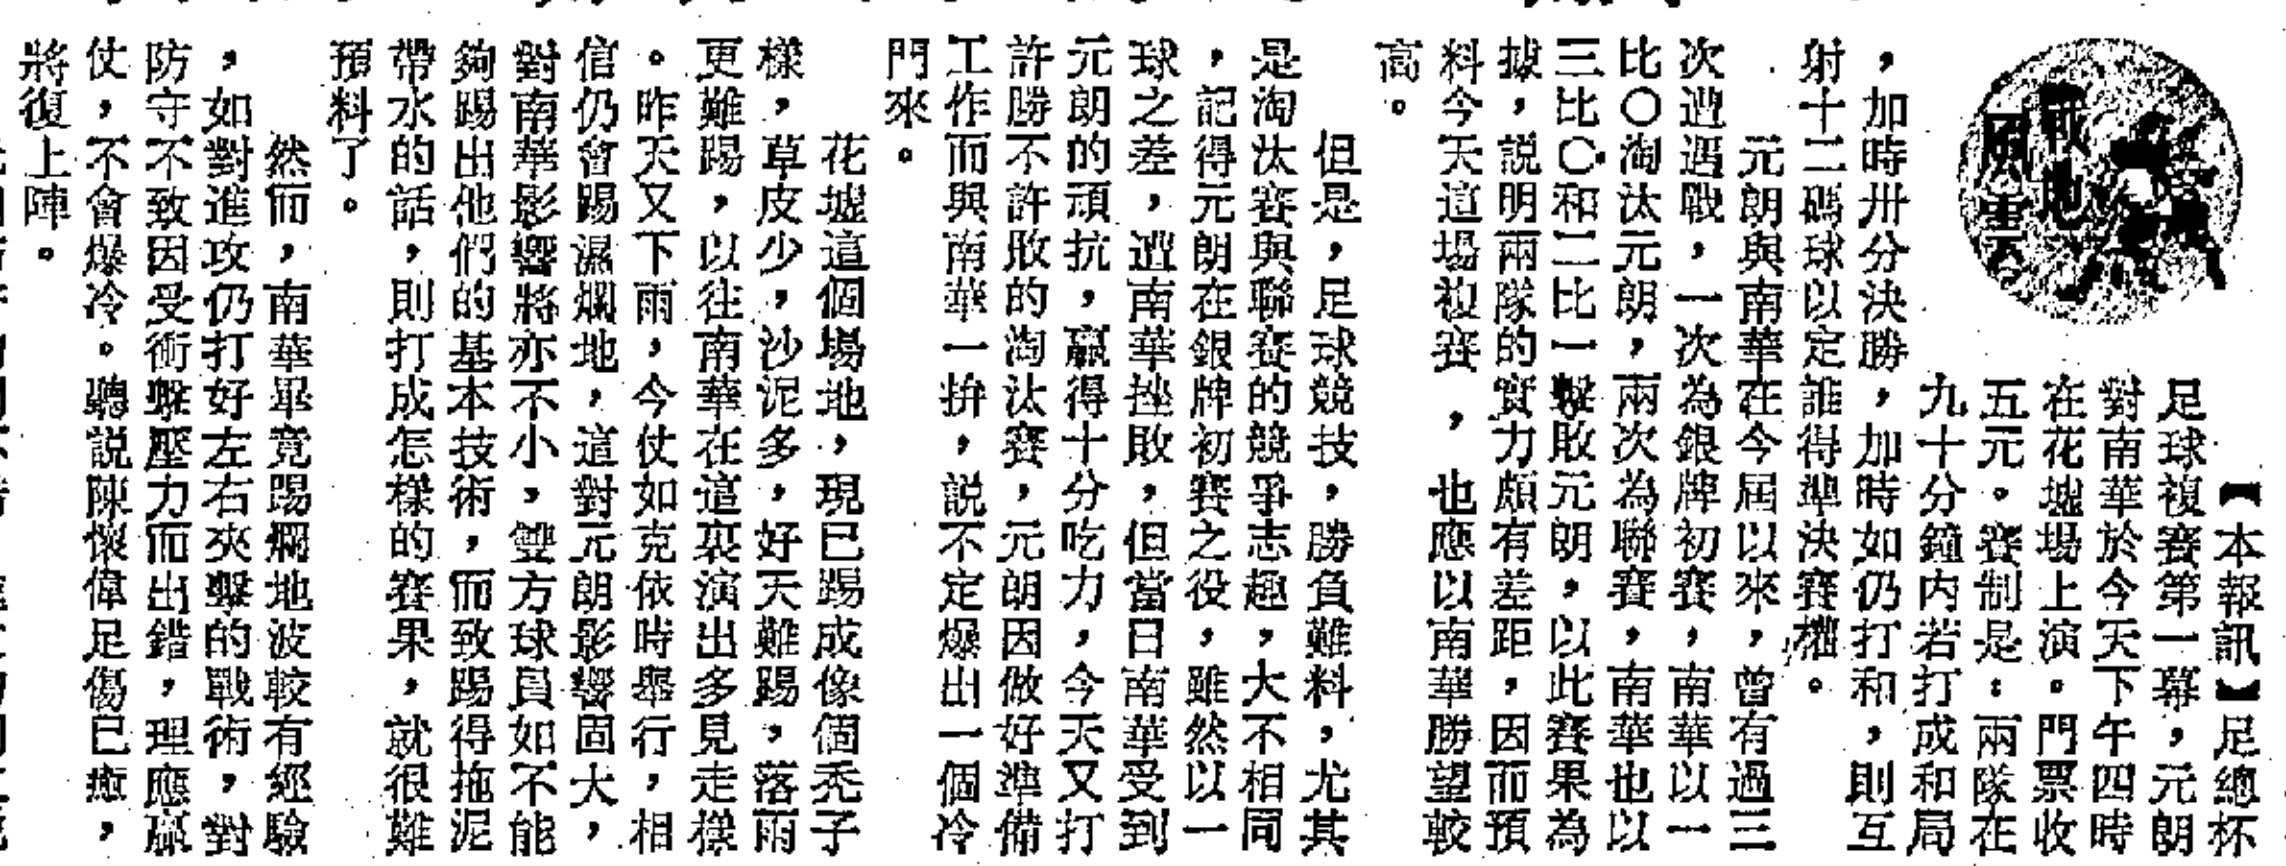 戰地風雲
【本報訊】足總杯
足球複賽第一幕，元朗
對南華於今天下午四時
在花墟場上演。門票收
五元。賽制是：兩隊在
九十分鐘內若打成和局
，加時卅分決勝，加時如仍打和，則互
射十二碼球以定誰得準決賽權。
元朗與南華在今屆以來，曾有過三
次遭遇戰，一次為銀牌初賽，南華以一
比〇淘汰元朗，兩次為聯賽，南華也以
三比〇和二比一擊敗元朗，以此賽果為
據，説明兩隊的實力頗有差距，因而預
料今天這場複賽，也應以南華勝望較
高。
但是，足球競技，勝負難料，尤其
是淘汰賽與聯賽的競爭志趣，大不相同
，記得元朗在銀牌初賽之役，雖然以一
球之差，遭南華挫敗，但當日南華受到
元朗的頑抗，贏得十分吃力，今天又打
許勝不許敗的淘汰賽，元朗因做好準備
工作而與南華一拚，説不定爆出一個冷
門來。
花墟這個場地，現已踢成像個禿子
樣，草皮少，沙泥多，好天難踢，落雨
更難踢，以往南華在這裏演出多見走樣
。昨天又下雨，今仗如克依時舉行，相
信仍會踢濕爛地，這對元朗影響固大，
對南華影響將亦不小，雙方球員如不能
夠踢出他們的基本技術，而致踢得拖泥
帶水的話，則打成怎樣的賽果，就很難
預料了。
然而，南華畢竟踢爛地波較有經驗
，如對進攻仍打好左右夾擊的戰術，對
防守不致因受衝擊壓力而出錯，理應贏
仗，不會爆冷。聽説陳懷偉足傷已癒，
將復上陣。